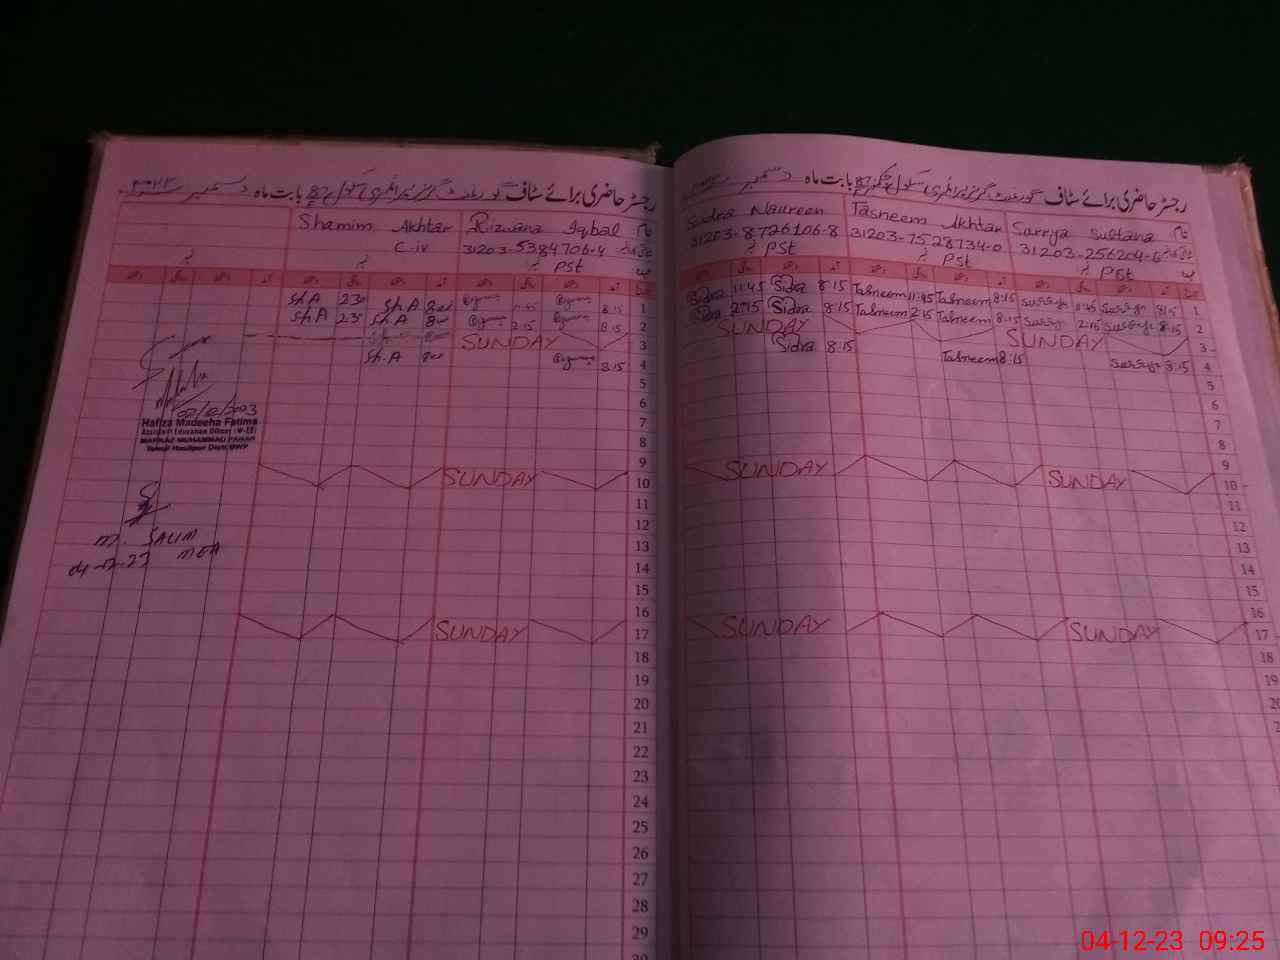 رجسٹر حاضری برائے سٹاف گورنمنٹ گرلز پرائمری سکول بابت ماہ دسمبر ۲۰۲۳
Surrya Sultana
Tasneem Akhtar
Sidra Naureen
31203-8726106-8
PSt
PSt
PSt
1 8:15 Surryya 11:45 8:15 Tasneem 11:45 Tasneem 8:15 Sidra 11:45 Sidra
2 8:15 Surryya 2:15 Surryya 8:15 Tasneem 2:15 Tasneem 8:15 Sidra 2:15 Sidra
3 SUNDAY SUNDAY
4 8:15 Surryya 8:15 Tasneem 8:15 Sidra
5
6
7
8
9
10 SUNDAY SUNDAY
11
12
13
14
15
16
17 SUNDAY SUNDAY
18
19
رجسٹر حاضری برائے سٹاف گورنمنٹ گرلز پرائمری سکول بابت ماہ دسمبر ۲۰۲۳
Rizwana Iqbal
Shamim Akhtar
31203-5384706-4
C-iv
PSt
1 8:15 11:45 Sh.A Sh.A
2 8:15 2:15 Sh.A Sh.A
3 SUNDAY
4 8:15 Sh.A
5
6
7
8
9
10 SUNDAY
11
12
13
14
15
16
17 SUNDAY
18
19
20
21
22
23
24
25
26
27
28
29
02/12/2023
Hafiza Madeeha Fatima
Assistant Education Officer (W-EE)
MARKAZ MUHAMMAD PANAH
Tehsil Hasilpur Distt: BWP
M. SALIM
04-12-23 MEA
04-12-23 09:25